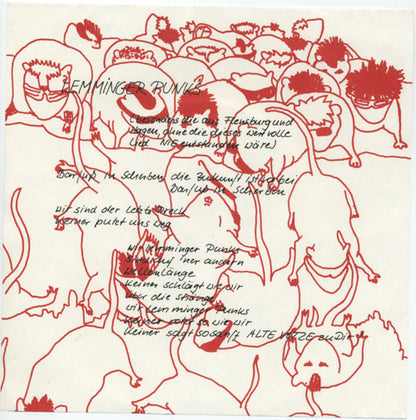 LEMMINGER PUNKS
(besonders die aus Flensburg und
Hagen, ohne die dieses wertvolle
Lied NIE entstanden wäre)
in Scherben, die Zukunft ist vorbei
in Scherben
wir sind der letzte Dreck
keiner putzt uns weg
Wir Lemminger Punks
'ner andern
Wellenlänge
Keiner schlägt wie wir
über die Stränge
Wir Lemminger Punks
keiner so wie wir
Keiner sagt so sanft ALTE zu Dir